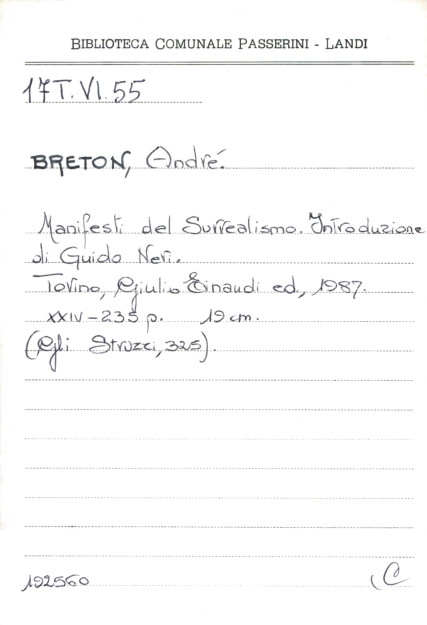 BIBLIOTECA COMUNALE PASSERINI - LANDI
17T.VI.55
BRETON, André.
Manifesti del Surrealismo. Introduzione
di Guido Neri.
Torino, Giulio Einaudi ed., 1987.
XXIV-235 p. 19 cm.
(Gli Struzzi, 325).
192560
C